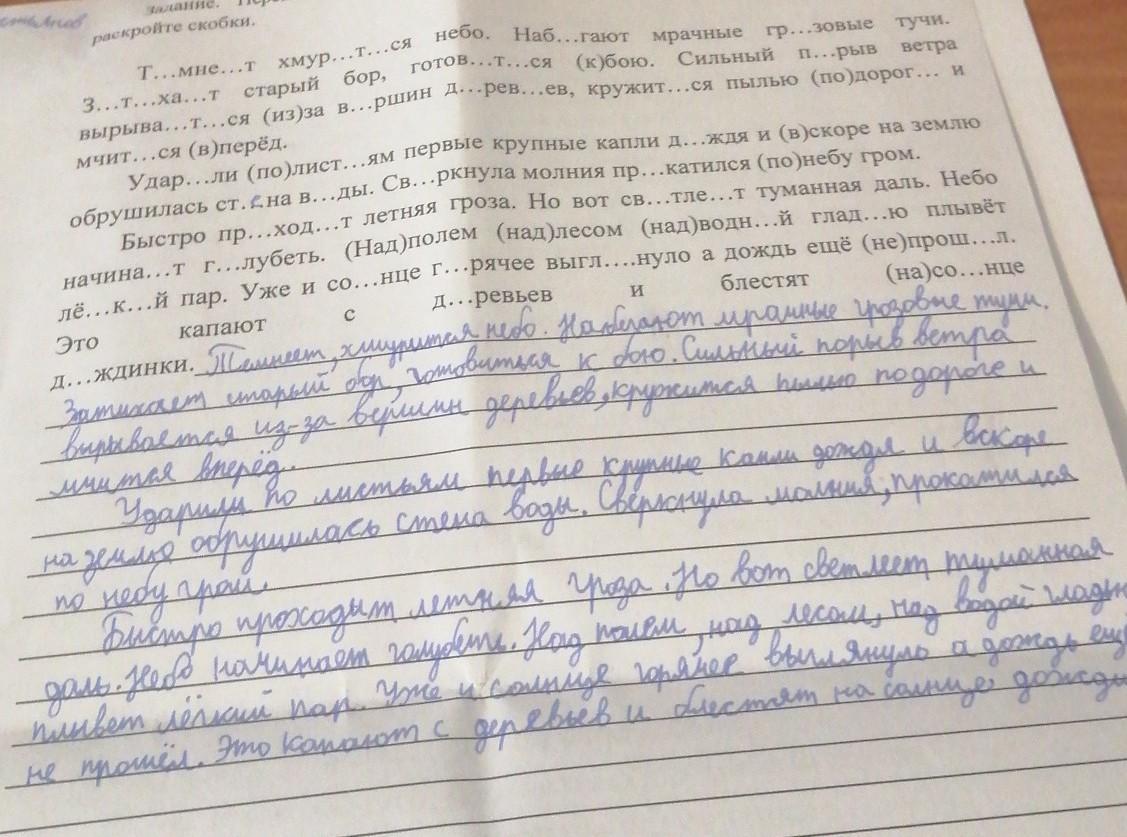 задание.
раскройте скобки.
Т…мне…т хмур…т…ся небо. Наб…гают мрачные гр…зовые тучи.
З…т…ха…т старый бор, готов…т…ся (к)бою. Сильный п…рыв ветра
вырыва…т…ся (из)за в…ршин д…рев…ев, кружит…ся пылью (по)дорог… и
мчит…ся (в)перёд.
Удар…ли (по)лист…ям первые крупные капли д…ждя и (в)скоре на землю
обрушилась ст.е.на в…ды. Св…ркнула молния пр…катился (по)небу гром.
Быстро пр…ход…т летняя гроза. Но вот св…тле…т туманная даль. Небо
начина…т г…лубеть. (Над)полем (над)лесом (над)водн…й глад…ю плывёт
лё…к…й пар. Уже и со…нце г…рячее выгл….нуло а дождь ещё (не)прош…л.
Это капают с д…ревьев и блестят (на)со…нце
д…ждинки. Темнеет, хмурится небо. Набегают мрачные грозовые тучи.
Затихает старый бор, готовиться к бою. Сильный порыв ветра
вырывается из-за вершин деревьев, кружится пылью по дороге и
мчится вперёд.
Ударили по листьям первые крупные капли дождя и вскоре
на землю обрушилась стена воды. Сверкнула молния, прокатился
по небу гром.
Быстро проходит летняя гроза. Но вот светлеет туманная
даль. Небо начинает голубеть. Над полем, над лесом, над водой гладью
плывет лёгкий пар. Уже и солнце горячее выглянуло а дождь ещё
не прошёл. Это капают с деревьев и блестят на солнце